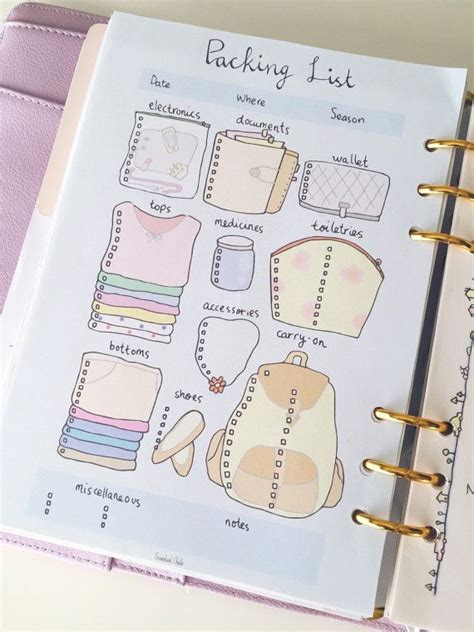 Packing List
Date Where Season
electronics
documents
wallet
tops
medicines
toiletries
accessories
carry-on
bottoms
shoes
miscellaneous
notes